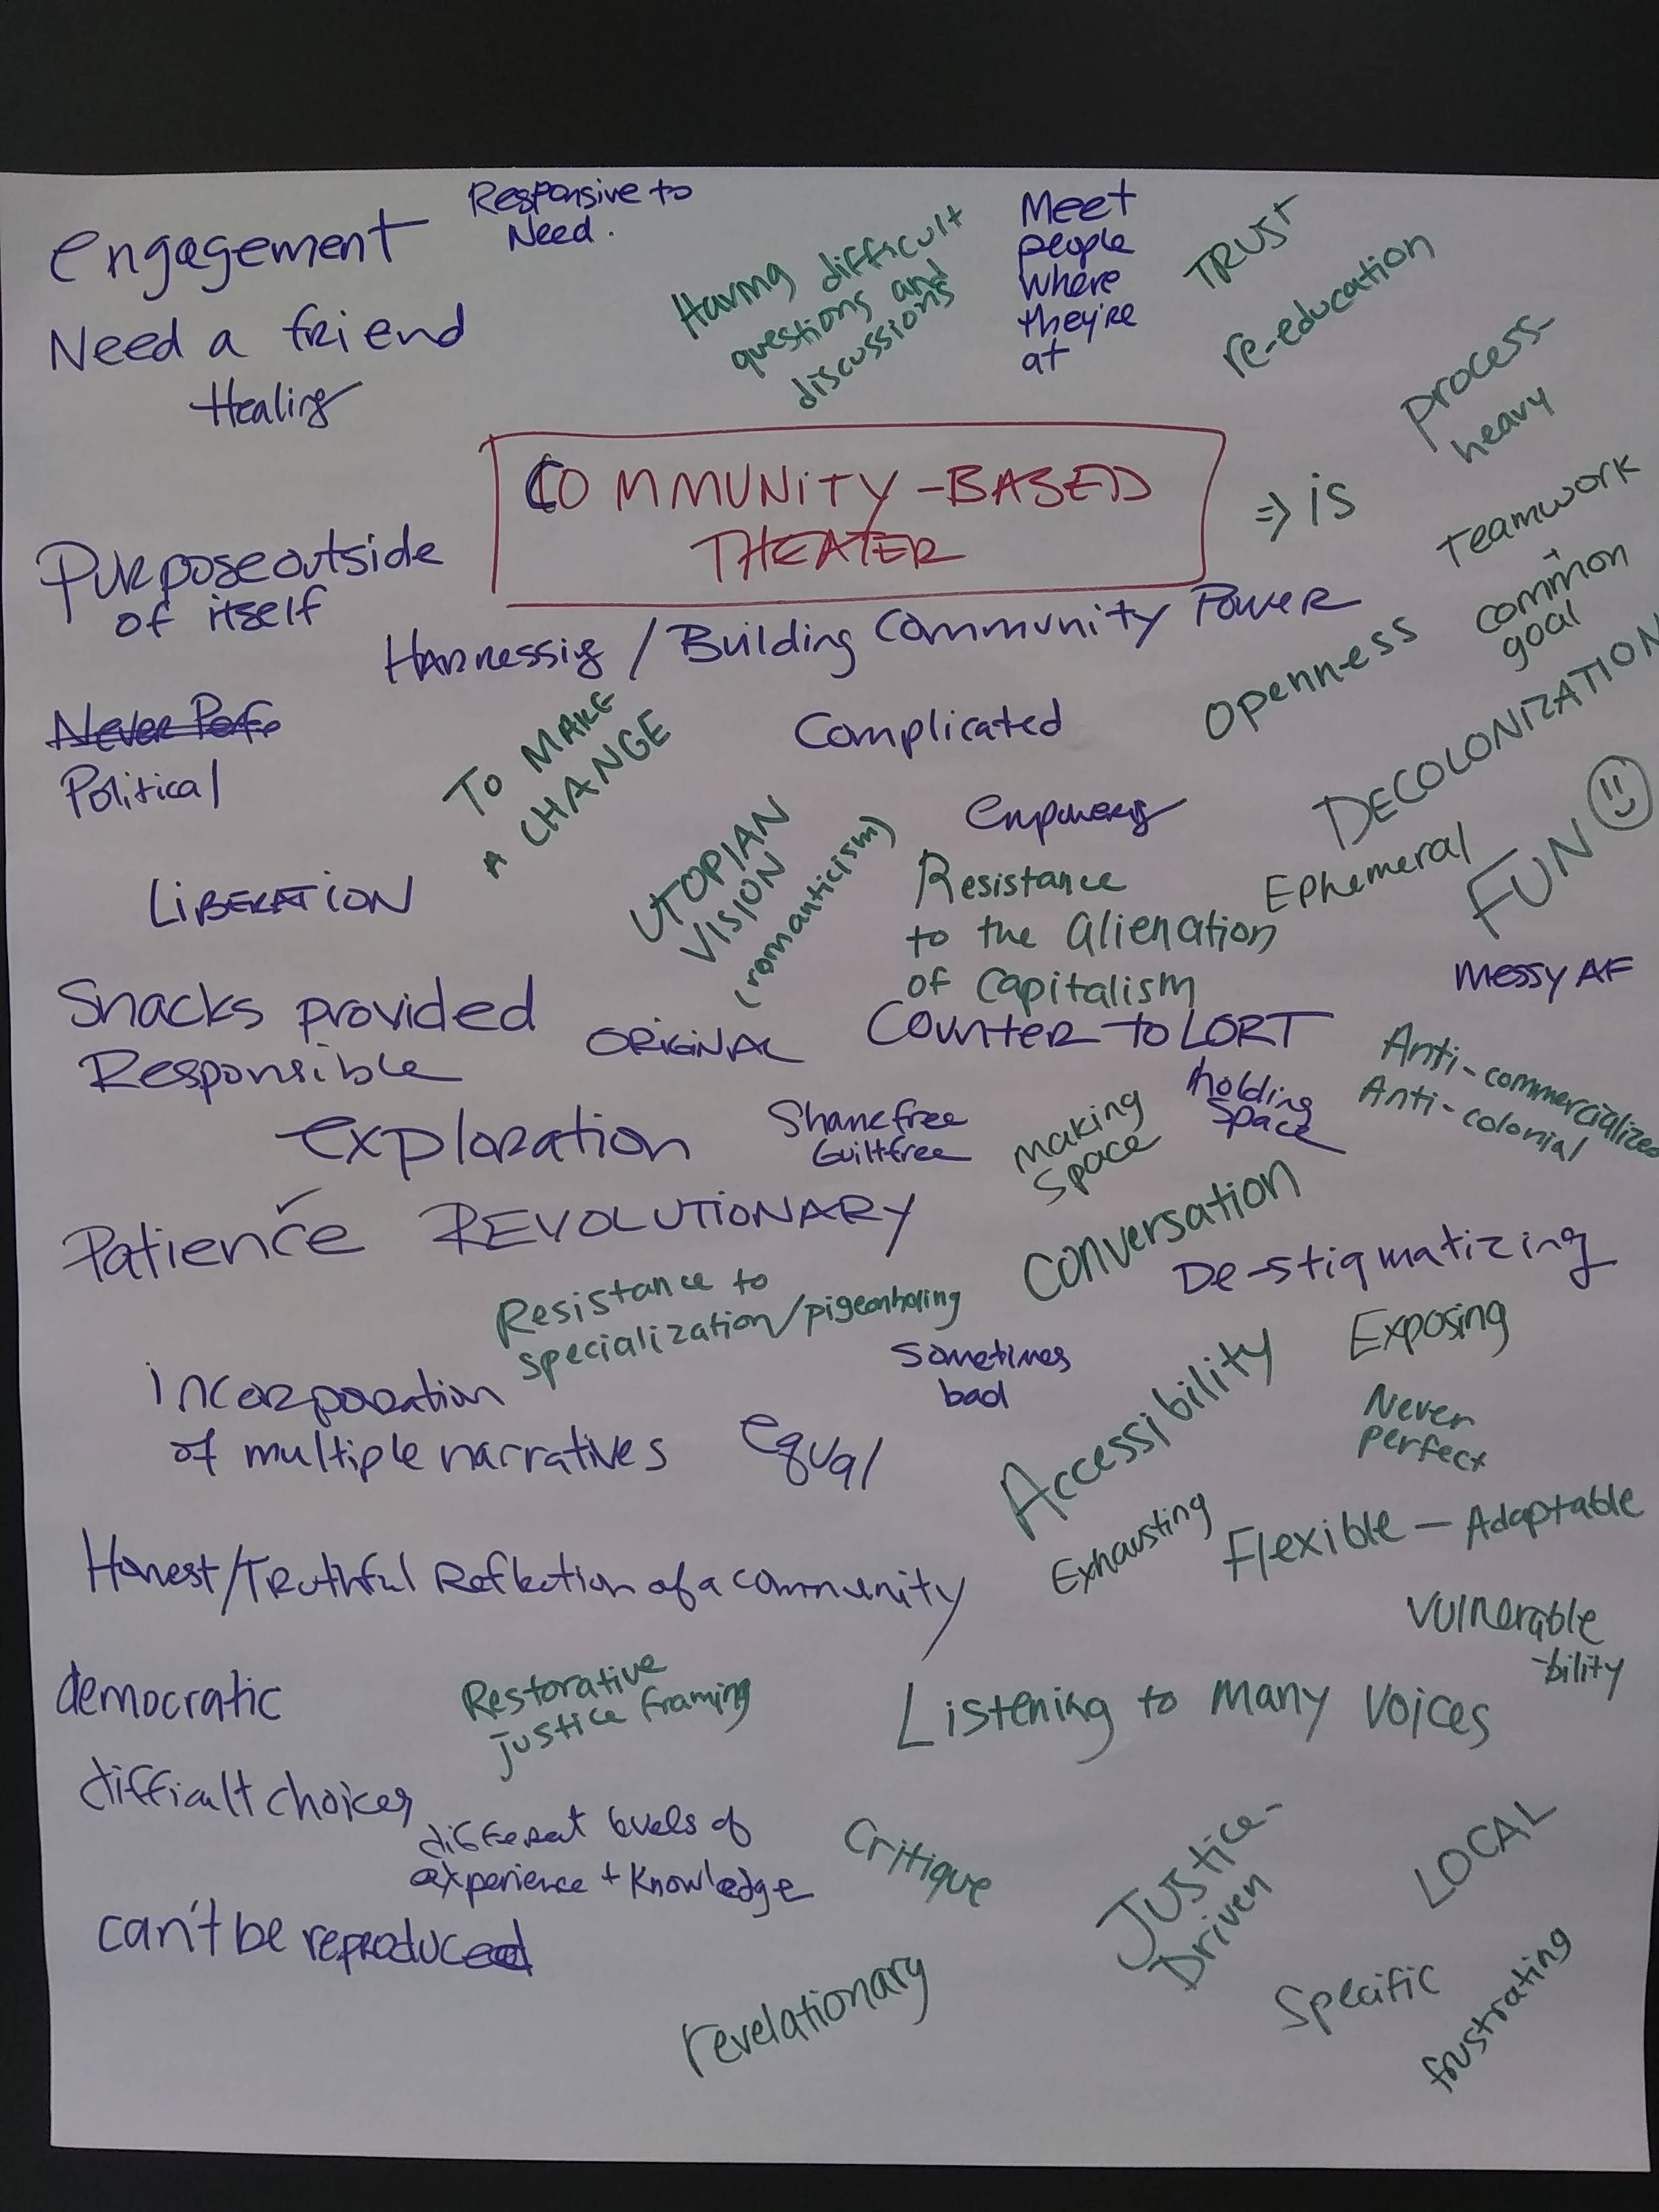 Responsive to
Need.
engagement
Need a friend
Healing
Having difficult
questions and
discussions
Meet
people
where
they're
at
TRUST
re-education
process-
heavy
COMMUNITY-BASED
THEATER
⇒ is
Teamwork
common
goal
Purpose outside
of itself
Harnessing / Building Community Power
Openness
DECOLONIZATION
Never Perf
Political
TO MAKE
A CHANGE
Complicated
FUN
LIBERATION
UTOPIAN
VISION
(romanticism)
Empowering
Resistance
to the alienation
of capitalism
Ephemeral
Messy AF
Snacks provided
Responsible
ORIGINAL
Counter to LORT
Anti-commercialized
Anti-colonial
exploration
Shame free
Guilt free
making
space
holding
space
Patience
REVOLUTIONARY
Conversation
De-stigmatizing
Resistance to
specialization/pigeonholing
Exposing
incorporation
of multiple narratives
equal
Sometimes
bad
Accessibility
Never
perfect
Exhausting
Flexible - Adaptable
Honest/Truthful Reflection of a community
Vulnerable
-bility
democratic
Restorative
justice framing
Listening to many voices
difficult choices
different levels of
experience + knowledge
Critique
Justice-
Driven
LOCAL
can't be reproduced
revelationary
Specific
frustrating